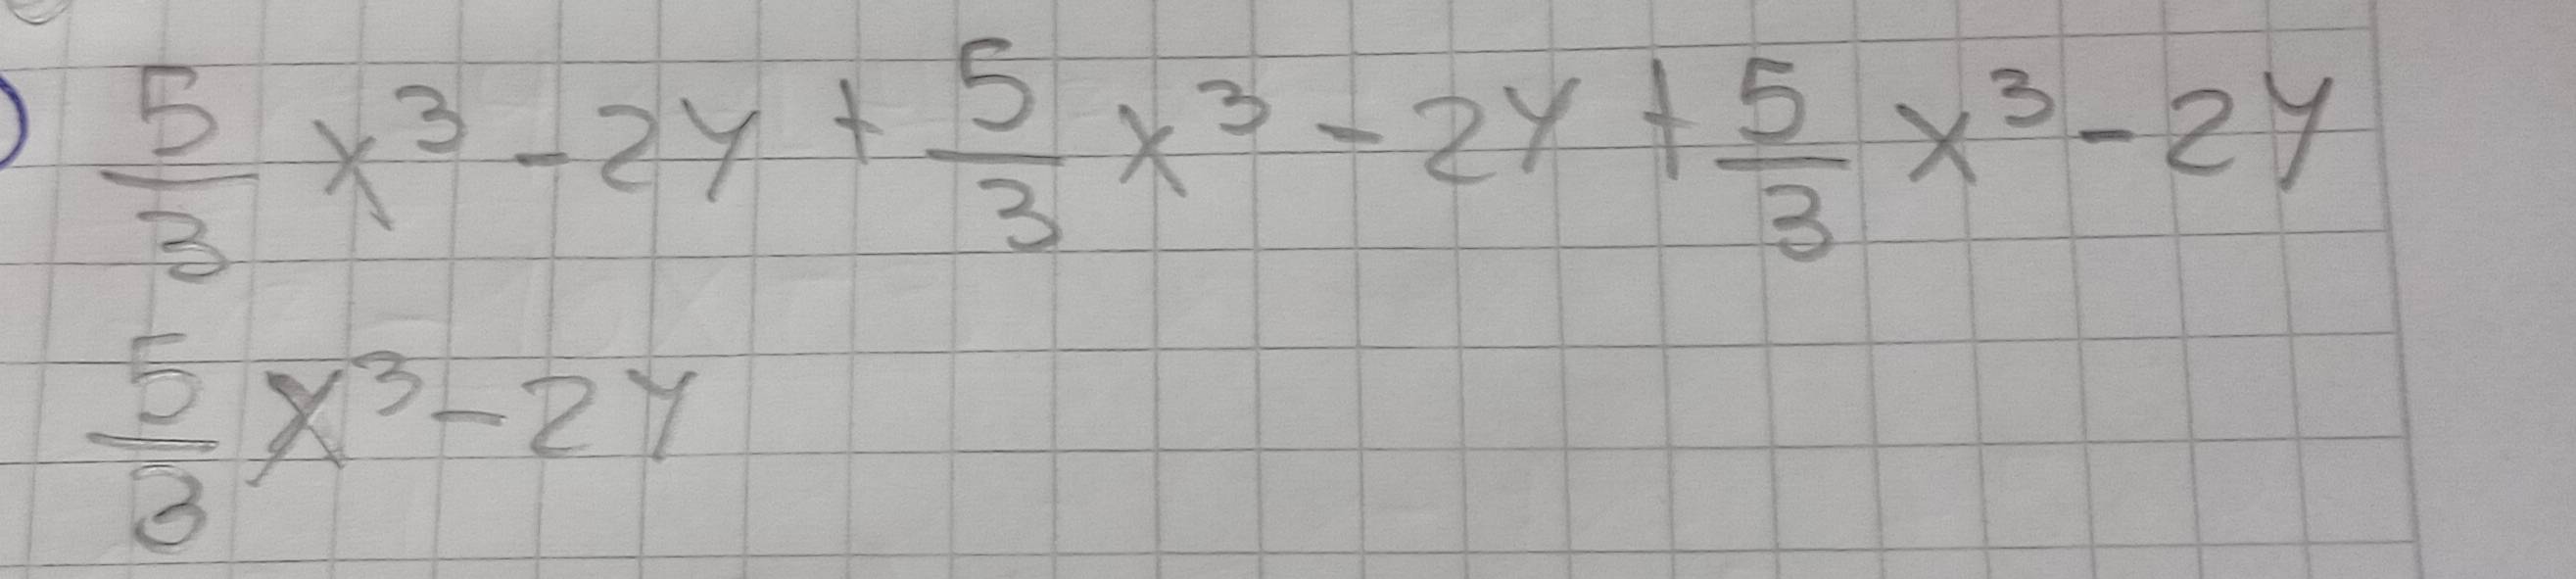 ) 5/3 x³ - 2y + 5/3 x³ - 2y + 5/3 x³ - 2y
5/3 x³ - 2y